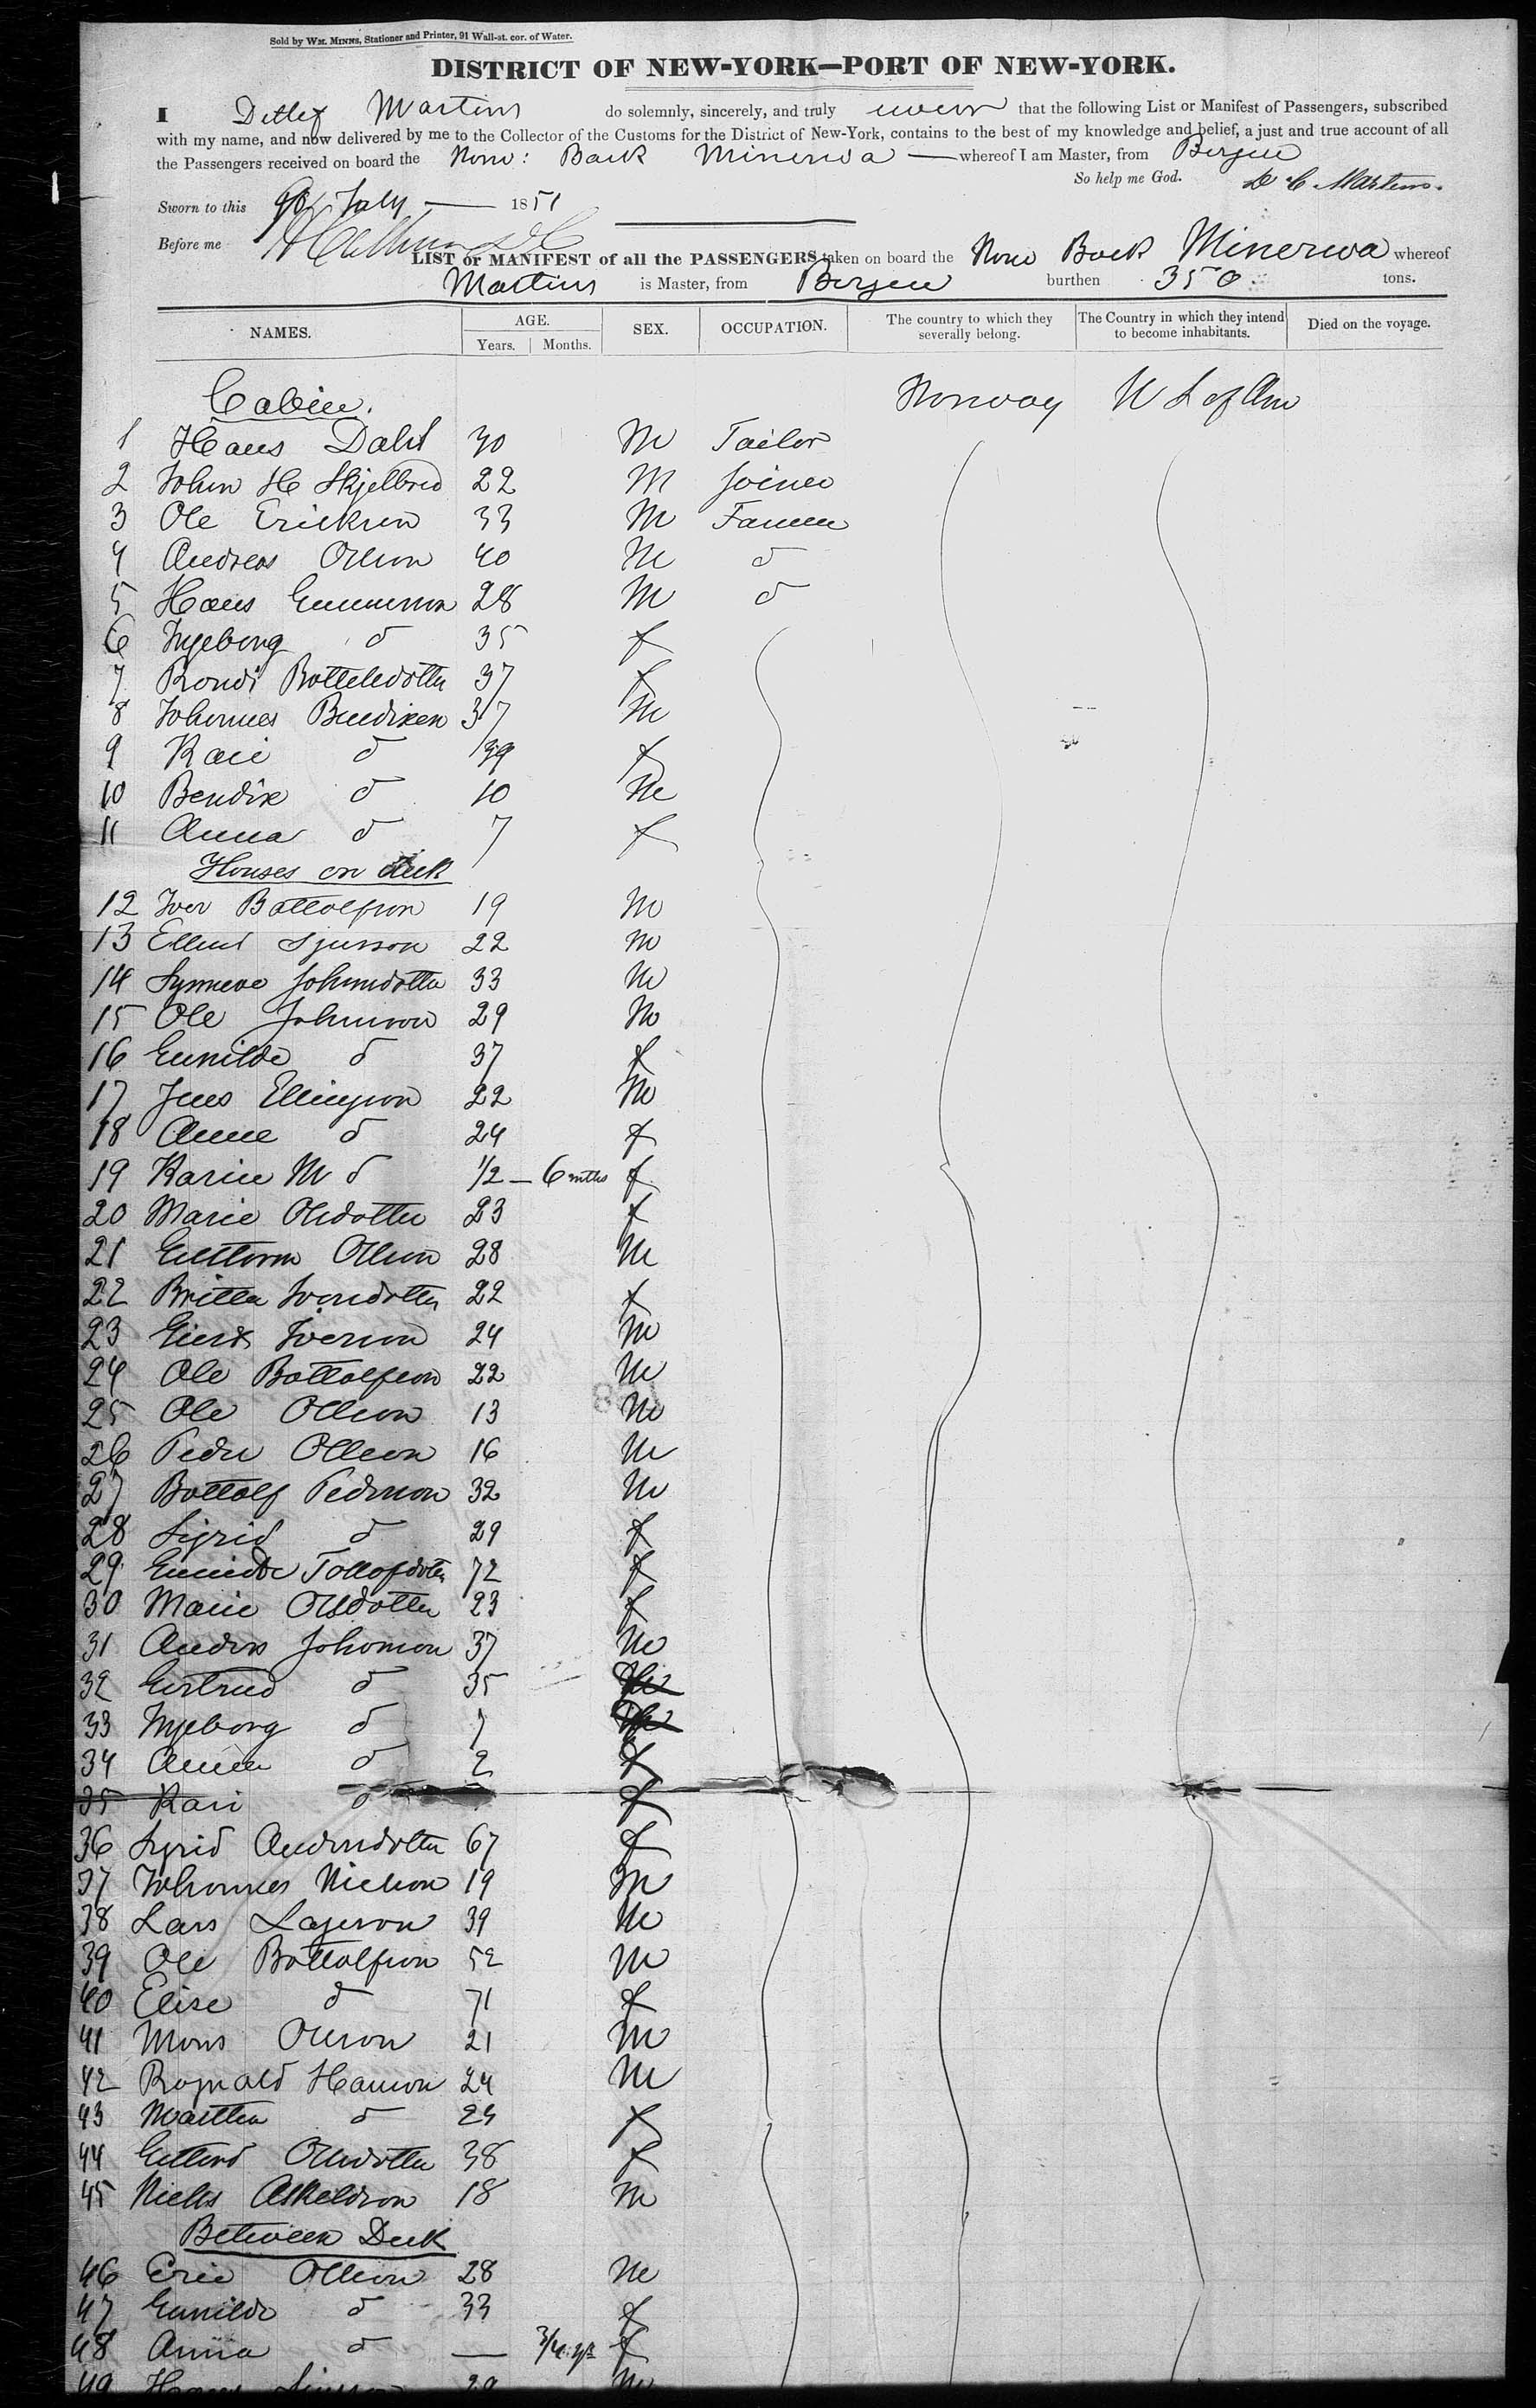 Sold by WM. MINNS, Stationer and Printer, 91 Wall-st. cor. of Water.
DISTRICT OF NEW-YORK—PORT OF NEW-YORK.
I Detlef Martins do solemnly, sincerely, and truly swear that the following List or Manifest of Passengers, subscribed
with my name, and now delivered by me to the Collector of the Customs for the District of New-York, contains to the best of my knowledge and belief, a just and true account of all
the Passengers received on board the Norw: Bark Minerva — whereof I am Master, from Bergen
So help me God. D C Martens.
Sworn to this July — 1851
Before me
LIST or MANIFEST of all the PASSENGERS taken on board the Norw Bark Minerva whereof
Martins is Master, from Bergen burthen 350 tons.
NAMES. AGE. Years. Months. SEX. OCCUPATION. The country to which they severally belong. The Country in which they intend to become inhabitants. Died on the voyage.
Cabin. Norway U S of Am
1 Hans Dahl 30 M Tailor
2 John H Skjelbred 22 M Joiner
3 Ole Erickson 33 M Farmer
4 Andreas Olson 40 M d
5 Hans 28 M d
6 Ingeborg d 35 f
7 Rondi 37 f
8 Johannes Bendixen 37 M
9 Kari d f
10 Bendix d 10 M
11 Anna d 7 f
Houses on deck
12 Iver Battolfson 19 M
13 Sjurson 22 M
14 Synneve Johnsdotter 33 M
15 Ole Johnson 29 M
16 Gunilde d 37 f
17 Jens Ellingson 22 M
18 Anne d 24 f
19 Karin M d 1/2 — 6 mths f
20 Marie Olsdotter 23 f
21 Guttorm Olson 28 M
22 Britta Iversdotter 22 f
23 Iverson 24 M
24 Ole Battolfson 22 M
25 Ole Olleson 13 M
26 Peder Olleson 16 M
27 Bottolf Pederson 32 M
28 Sigrid d 29 f
29 Gunilde Tollofsdotter 72 f
30 Marie Olsdotter 23 f
31 Anders Johanson 37 M
32 Gertrud d 35
33 Ingeborg d 7
34 Anna d 2 f
35 Kari d f
36 Sigrid Andersdotter 67 f
37 Johannes Nielson 19 M
38 Lars 39 M
39 Ole Battolfson 52 M
40 Elise d 71 f
41 Mons Olleson 21 M
42 Rognald Hanson 24 M
43 Martha d f
44 Ollesdotter 38 f
45 Niels Askeldson 18 M
Between Deck
46 Eric Olleson 28 M
47 Gunilde d 33 f
48 Anna d — 3/4 yr f
49 Hans 29 M